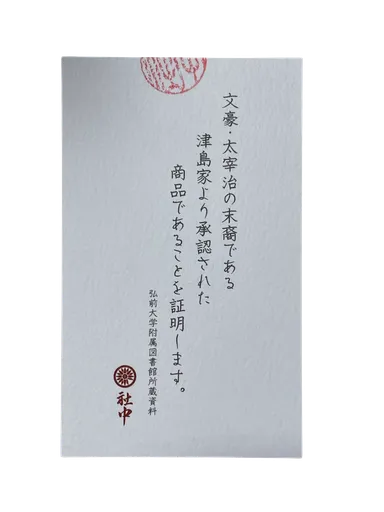 文豪・太宰治の末裔である
津島家より承認された
商品であることを証明します。
弘前大学附属図書館所蔵資料
社中